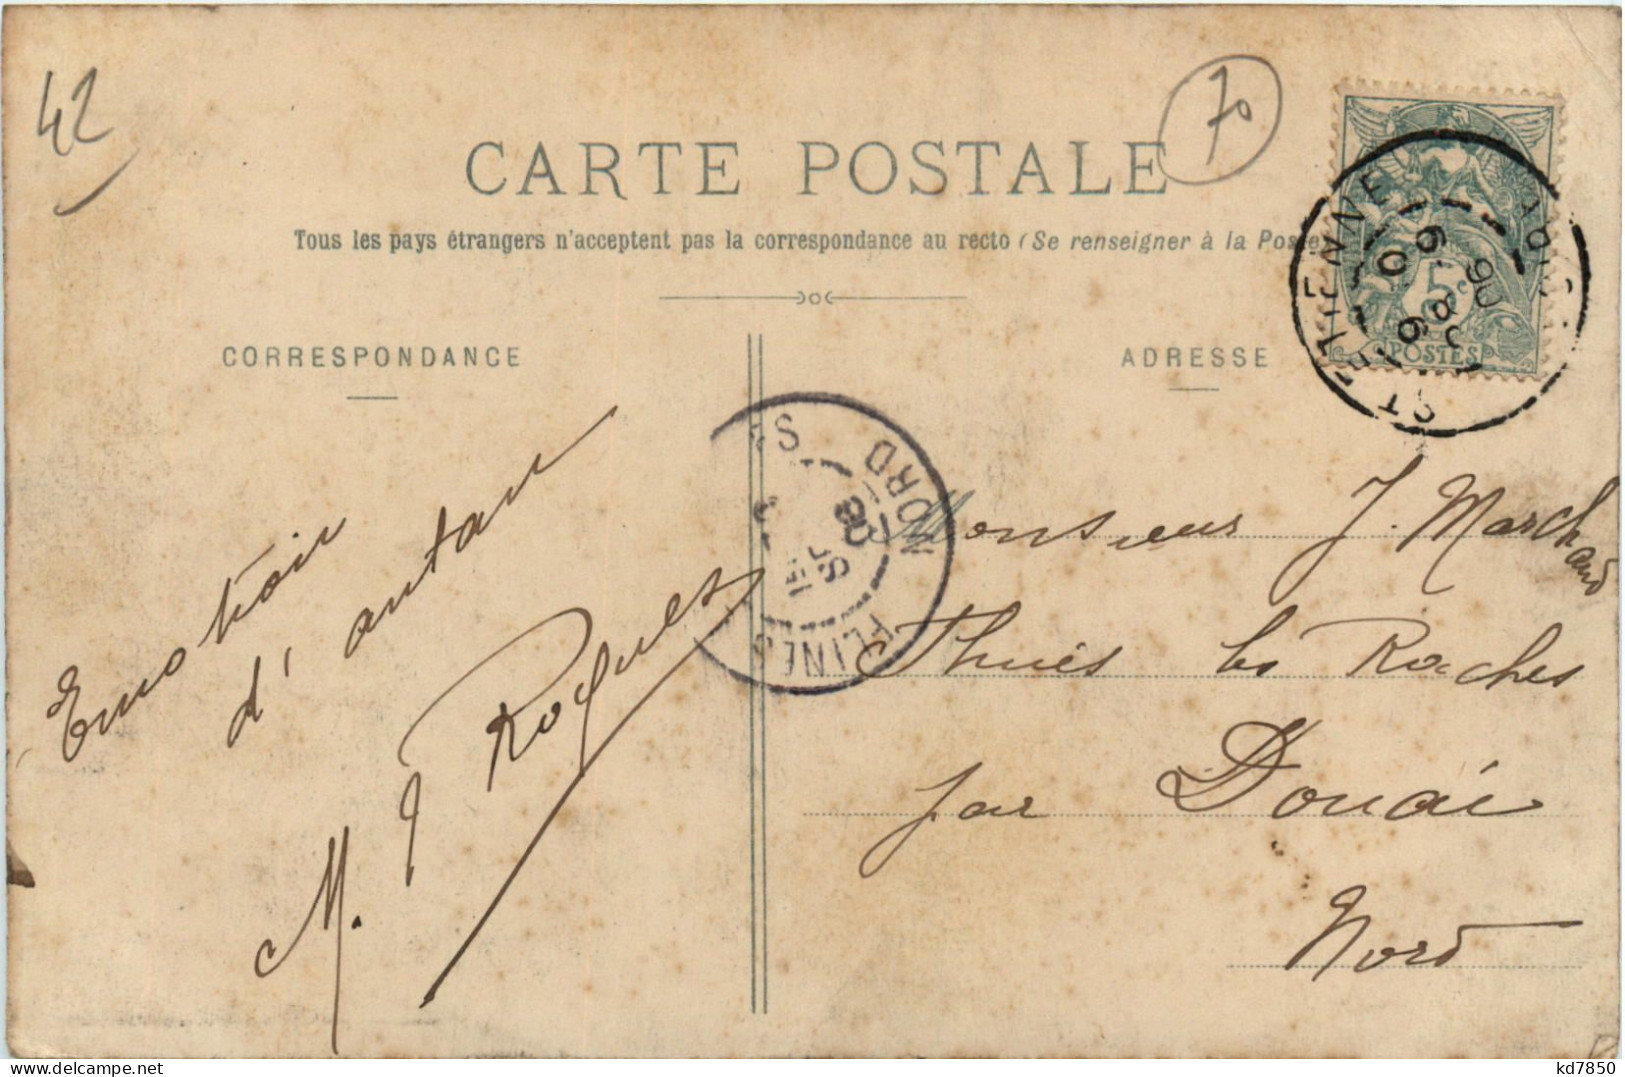 42
70
CARTE POSTALE
Tous les pays étrangers n'acceptent pas la correspondance au recto (Se renseigner à la Poste)
CORRESPONDANCE
ADRESSE
5c
POSTES
ST ETIENNE
NORD
FLINES
d'antan
M. J Roques
Monsieur J. Marchand
par Douai
Nord
kd7850